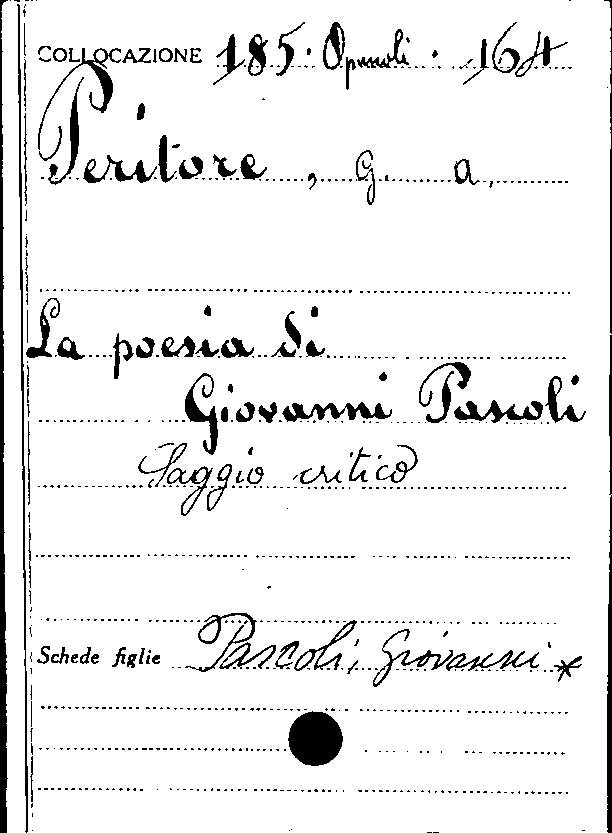 COLLOCAZIONE 185. Opuscoli. 164
Peritore, G. A.
La poesia di
Giovanni Pascoli
Saggio critico
Schede figlie Pascoli, Giovanni *